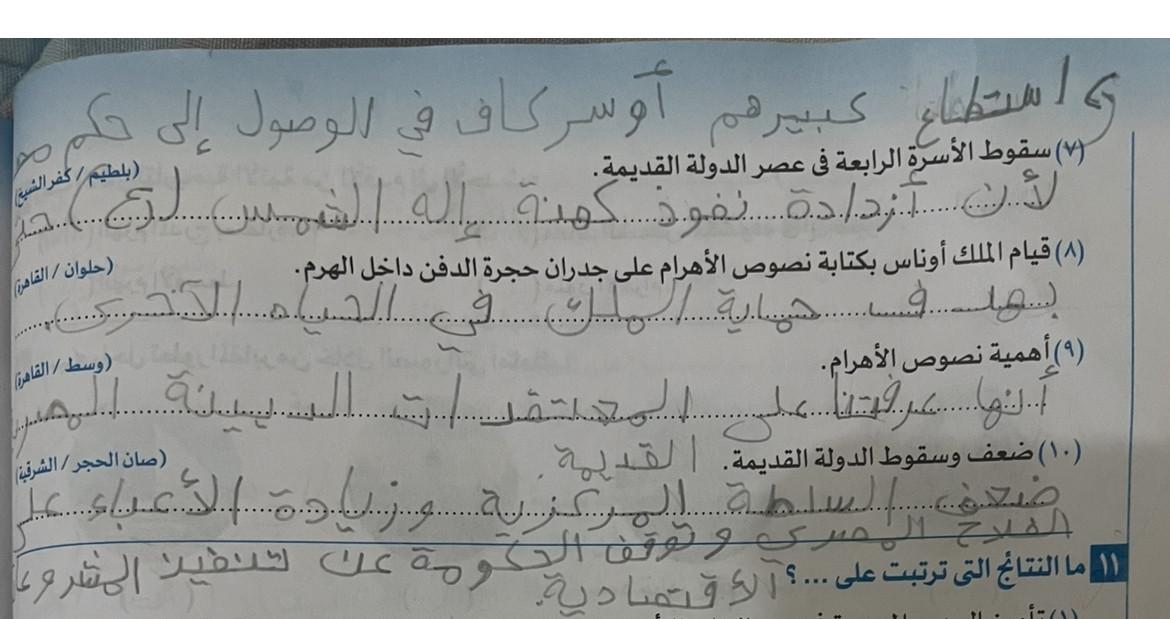 و استطاع كبيرهم أوسر كاف في الوصول إلى حكم
(٧) سقوط الأسرة الرابعة فى عصر الدولة القديمة. (بلطيم / كفر الشيخ)
لأن أزدادة نفوذ كهنة إله الشمس (رع)
(٨) قيام الملك أوناس بكتابة نصوص الأهرام على جدران حجرة الدفن داخل الهرم. (حلوان / القاهرة)
بهدف حماية الملك في الحياه الآخرى
(٩) أهمية نصوص الأهرام. (وسط / القاهرة)
أنها عرفتنا على المعتقدات الدينية
القديمة
(١٠) ضعف وسقوط الدولة القديمة. (صان الحجر / الشرقية)
ضعف السلطة المركزية وزيادة الأعباء على
الفلاح المصرى وتوقف الحكومة عن تنفيذ
الأقتصادية.
١١ ما النتائج التى ترتبت على ...؟